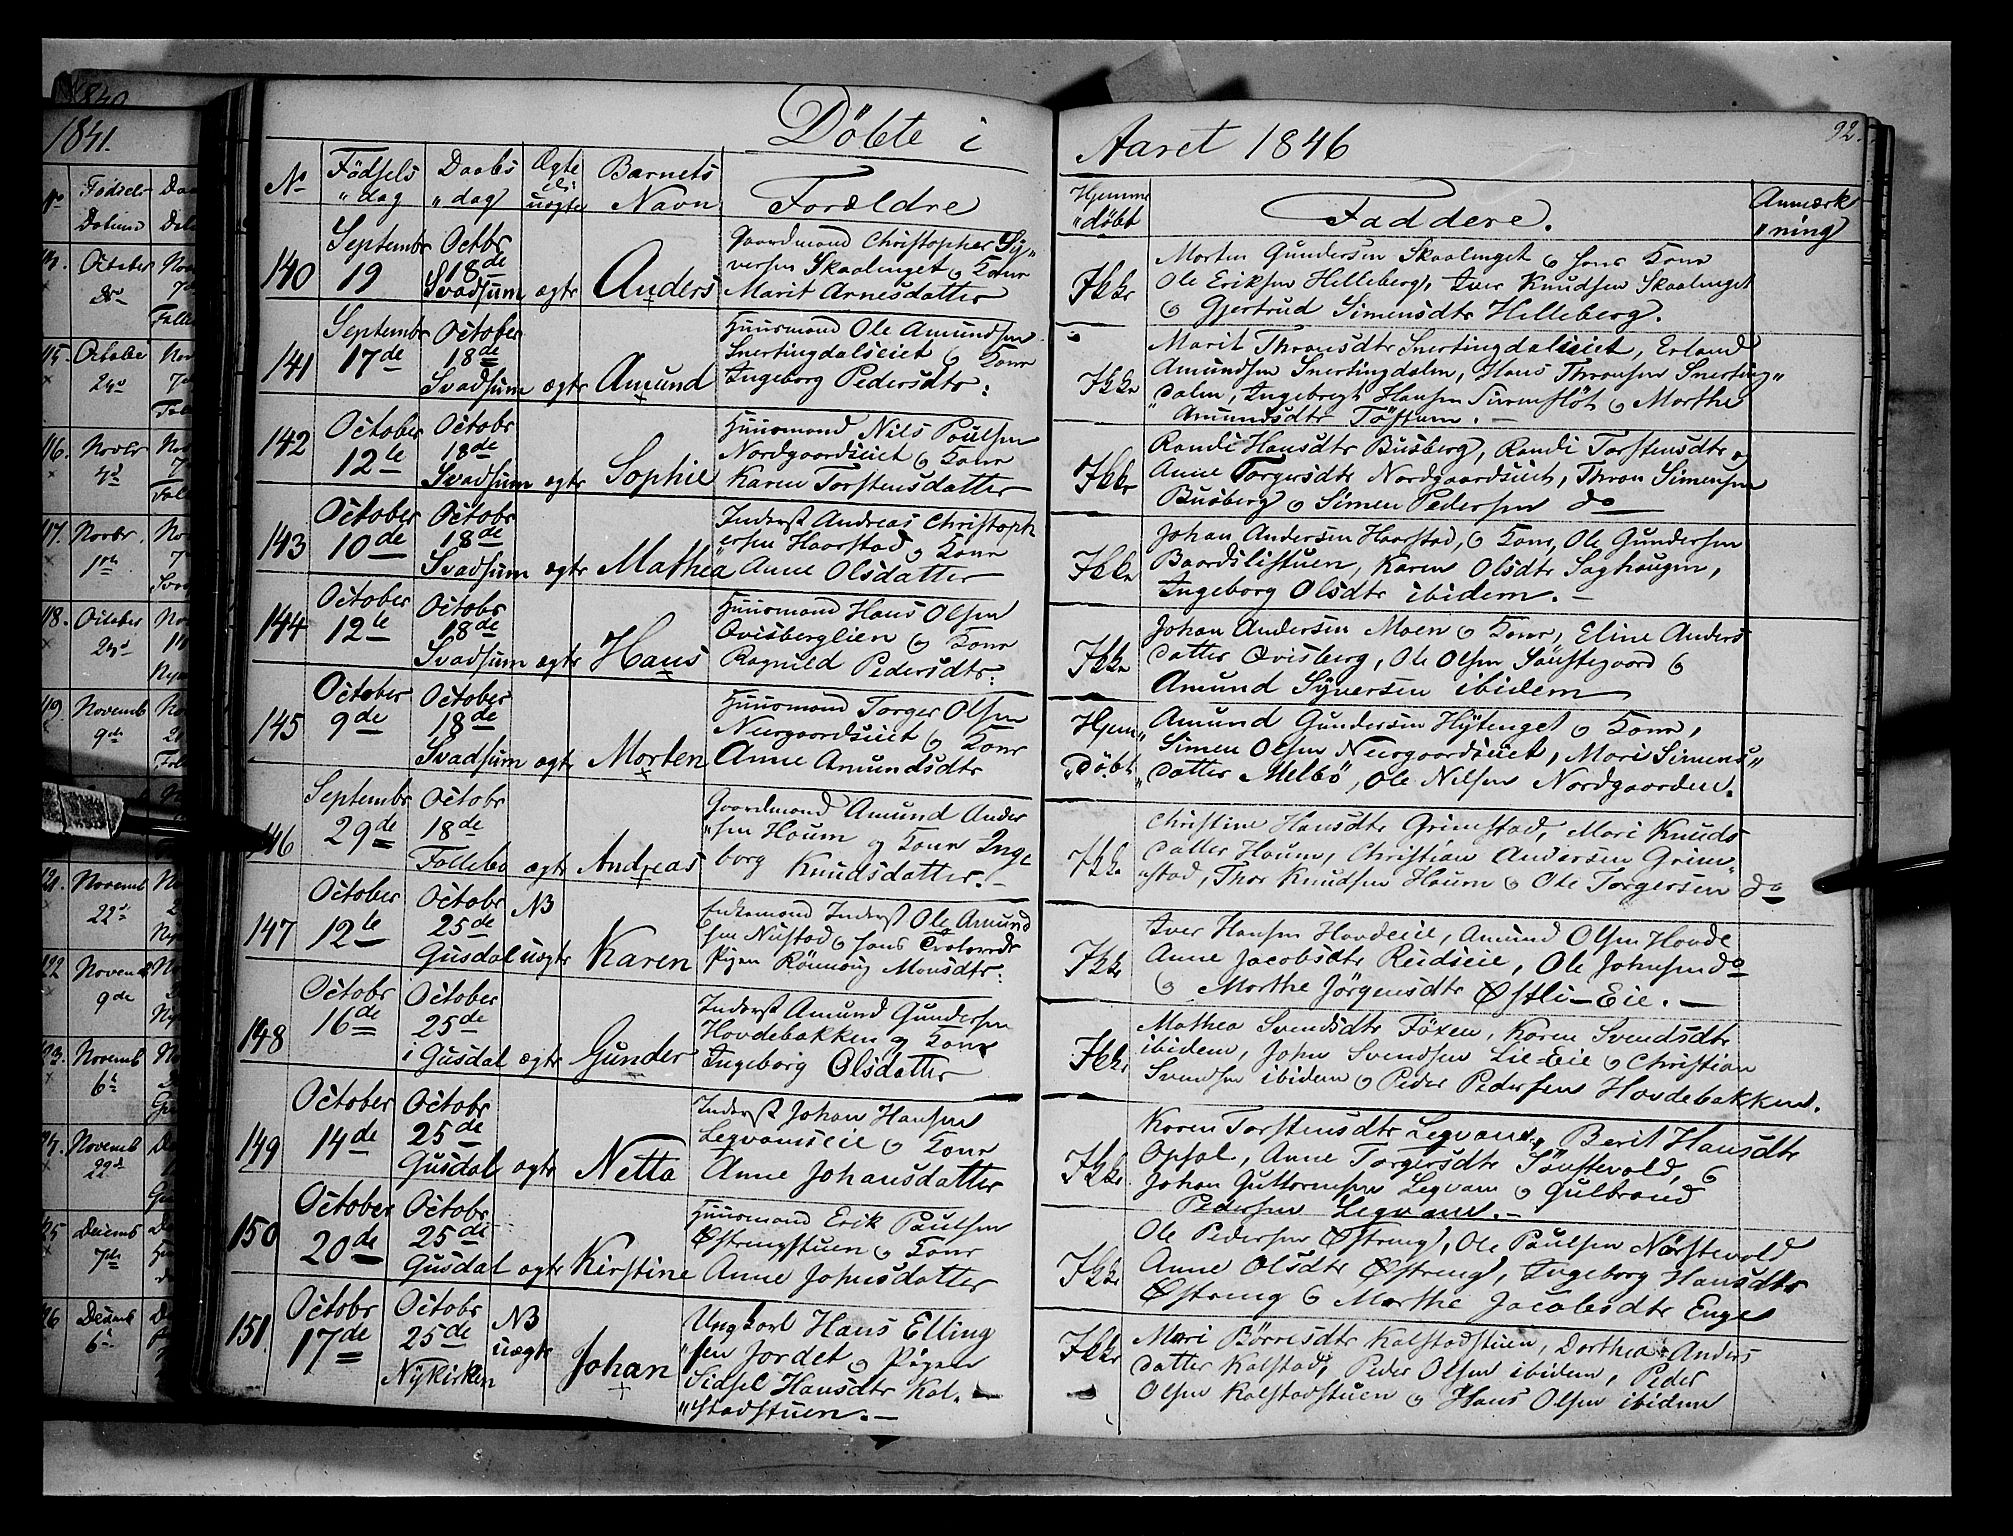 Døbte i Aaret 1846
92.
No Fødsels "dag Daabs "dag Ægte eli uægte Barnets Navn Forældre Hjemme "døbt Faddere. Anmærk "ning
140 Septembr 19 Octbr 18de Svadsum ægte Anders
Gaardmand Christopher Sy"
versen Skaalenget og Kone
Marit Arnesdatter
Ikke
Morten Gundersen Skaalenget og hans Kone
Ole Eriksen Helleberg, Iver Knudsen Skaalenget
og Gjertrud Simensdtr Helleberg.
141 Septembr 17de October 18de Svadsum ægte Amund
Huusmand Ole Amundsen
Snertingdalseiet og Kone
Ingeborg Pedersdtr:
Ikke
Marit Thronsdtr Snertingdalseiet, Erland
Amundsen Snertingdalen, Hans Thronsen Snerting"
"dalen, Ingebregt Hansen og Marthe
Amundsdtr Töftum. -
142 October 12te Octobr 18de Svadsum ægte Sophie
Huusmand Nils Poulsen
Nordgaardseiet og Kone
Karen Torstensdatter
Ikke
Randi Hansdtr Busberg, Randi Torstensdtr og
Anne Torgersdtr Nordgaardseiet, Thron Simensen
Busberg og Simen Pedersen do
143 October 10de Octobr 18de Svadsum ægte Mathea
Inderst Andreas Christoph
ersen Haarstad og Kone
Anne Olsdatter
Ikke
Johan Andersen Haarstad, og Kone, Ole Gundersen
Baardslistuen, Karen Olsdtr Saghaugen,
Ingeborg Olsdtr ibidem. -
144 October 12te Octobr 18de Svadsum ægte Hans
Huusmand Hans Olsen
Qvisberglien og Kone
Ragnild Pedersdtr:
Ikke
Johan Andersen Moen og Kone, Eline Anders
datter Qvisberg, Ole Olsen Sönstegaard og
Amund Syversen ibidem
145 October 9de October 18de Svadsum ægte Morten
Huusmand Torger Olsen
Neergaardseiet og Kone
Anne Amundsdtr
Hjem" "döbt
Amund Gundersen Hytenget og Kone,
Simen Olsen Neergaardseiet, Mari Simens"
"datter Melbö, Ole Nilsen Nordgaarden.
146 Septembr 29de Octobr 18de Follebo ægte Andreas
Gaardmand Amund Ander
"sen Houm og Kone Inge
borg Knudsdatter. -
Ikke
Christine Hansdtr Grimstad, Mari Knuds
datter Houm, Christian Andersen Grim"
"stad, Thor Knudsen Houm og Ole Torgersen do
147 October 12te Octobr 25de Gusdal NB uægte Karen
Enkemand Inderst Ole Amund
sen Nustad og hans Trolovede
Pigen Rönnoug Monsdtr:
Ikke
Iver Hansen Hovdeeie, Amund Olsen Hovde
Anne Jacobsdtr Reidseie, Ole Johnsen do
og Marthe Jörgensdtr Østli-Eie. -
148 Octobr 16de October 25de i Gusdal ægte Gunder
Inderst Amund Gundersen
Hovdebakken og Kone
Ingeborg Olsdatter
Ikke
Mathea Svendsdtr Föxen, Karen Svendsdtr
ibidem, John Svendsen Lie-Eie og Christian
Svendsen ibidem og Peder Pedersen Hovdebakken.
149 October 14de Octobr 25de Gusdal ægte Netta
Inderst Johan Hansen
Legvamseie og Kone
Anne Johansdatter
Ikke
Karen Torstensdtr Legvam, Berit Hansdtr
Opsal, Anne Torgersdtr Sönstevold, og
Johan Guttormsen Legvam og Gulbrand
Pedersen Legvam. -
150 October 20de Octobr 25de Gusdal ægte Kirstine
Huusmand Erik Paulsen
Østrengstuen og Kone
Anne Johnsdatter
Ikke
Ole Pedersen Østreng, Ole Paulsen Nörstevold
Anne Olsdtr Østreng, Ingeborg Hansdtr
Østreng og Marthe Jacobsdtr Enge
151. Octobr 17de Octobr 25de Nykirken NB uægte Johan
Ungkarl Hans Elling
"sen Jordet og Pigen
Sidsel Hansdtr Kal.
"stadstuen. -
Ikke
Mari Börresdtr Kalstadstuen, Dorthea Anders
datter Kalstad, Peder Olsen ibidem, Peder
Olsen Kalstadstuen og Hans Olsen ibidem
1841.
Fødsels Datum
October
October 24de
Novbr
Novbr.
October
Novemb 9de
Novemb 22de
Novemb 9de
Novemb 6te
Novemb 22de
Decemb 7de
Decemb 6te